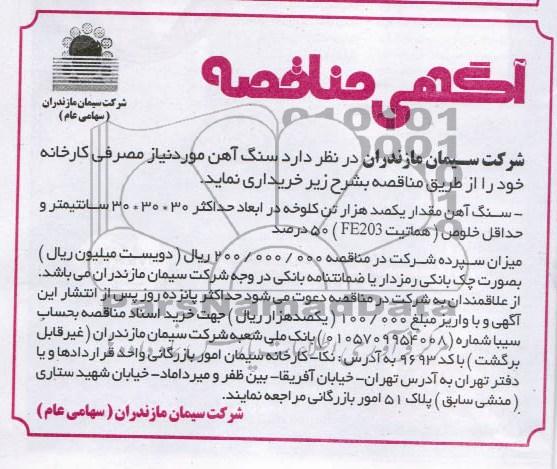 آگهی مناقصه
شرکت سیمان مازندران
(سهامی عام)
شرکت سیمان مازندران در نظر دارد سنگ آهن موردنیاز مصرفی کارخانه
خود را از طریق مناقصه بشرح زیر خریداری نماید.
- سنگ آهن مقدار یکصد هزار تن کلوخه در ابعاد حداکثر ۳۰*۳۰*۳۰ سانتیمتر و
حداقل خلوص (هماتیت FE203) ۵۰ درصد
میزان سپرده شرکت در مناقصه ۲۰۰/۰۰۰/۰۰۰ ریال (دویست میلیون ریال)
بصورت چک بانکی رمزدار یا ضمانتنامه بانکی در وجه شرکت سیمان مازندران می باشد.
از علاقمندان به شرکت در مناقصه دعوت می شود حداکثر پانزده روز پس از انتشار این
آگهی و با واریز مبلغ ۱۰۰/۰۰۰ (یکصدهزار ریال) جهت خرید اسناد مناقصه بحساب
سیبا شماره (۰۱۰۵۷۰۹۹۵۴۰۰۸) بانک ملی شعبه شرکت سیمان مازندران (غیرقابل
برگشت) با کد ۹۶۹۳ به آدرس: نکا- کارخانه سیمان امور بازرگانی واحد قراردادها و یا
دفتر تهران به آدرس تهران- خیابان آفریقا- بین ظفر و میرداماد- خیابان شهید ستاری
(منشی سابق) پلاک ۵۱ امور بازرگانی مراجعه نمایند.
شرکت سیمان مازندران (سهامی عام)